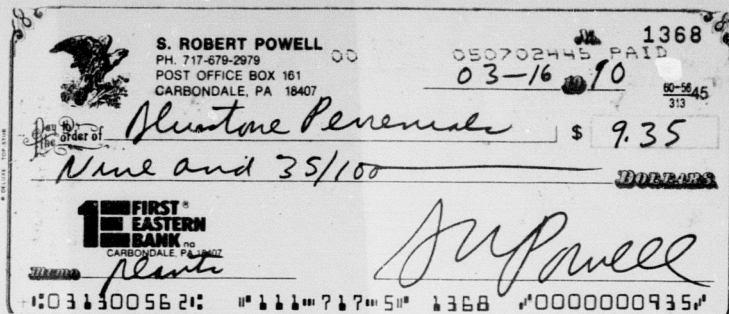 S. ROBERT POWELL
PH. 717-679-2979
POST OFFICE BOX 161
CARBONDALE, PA 18407
00
1368
050702445 PAID
03-16 1990
60-5645
313
Pay to the order of Bluestone Perennials $ 9.35
Nine and 35/100 DOLLARS
1 FIRST®
EASTERN
BANK na
CARBONDALE, PA 18407
Memo plants
SRPowell
⑆031300562⑆ ⑈111⑈717⑈5⑈ 1368 ⑈0000000935⑈